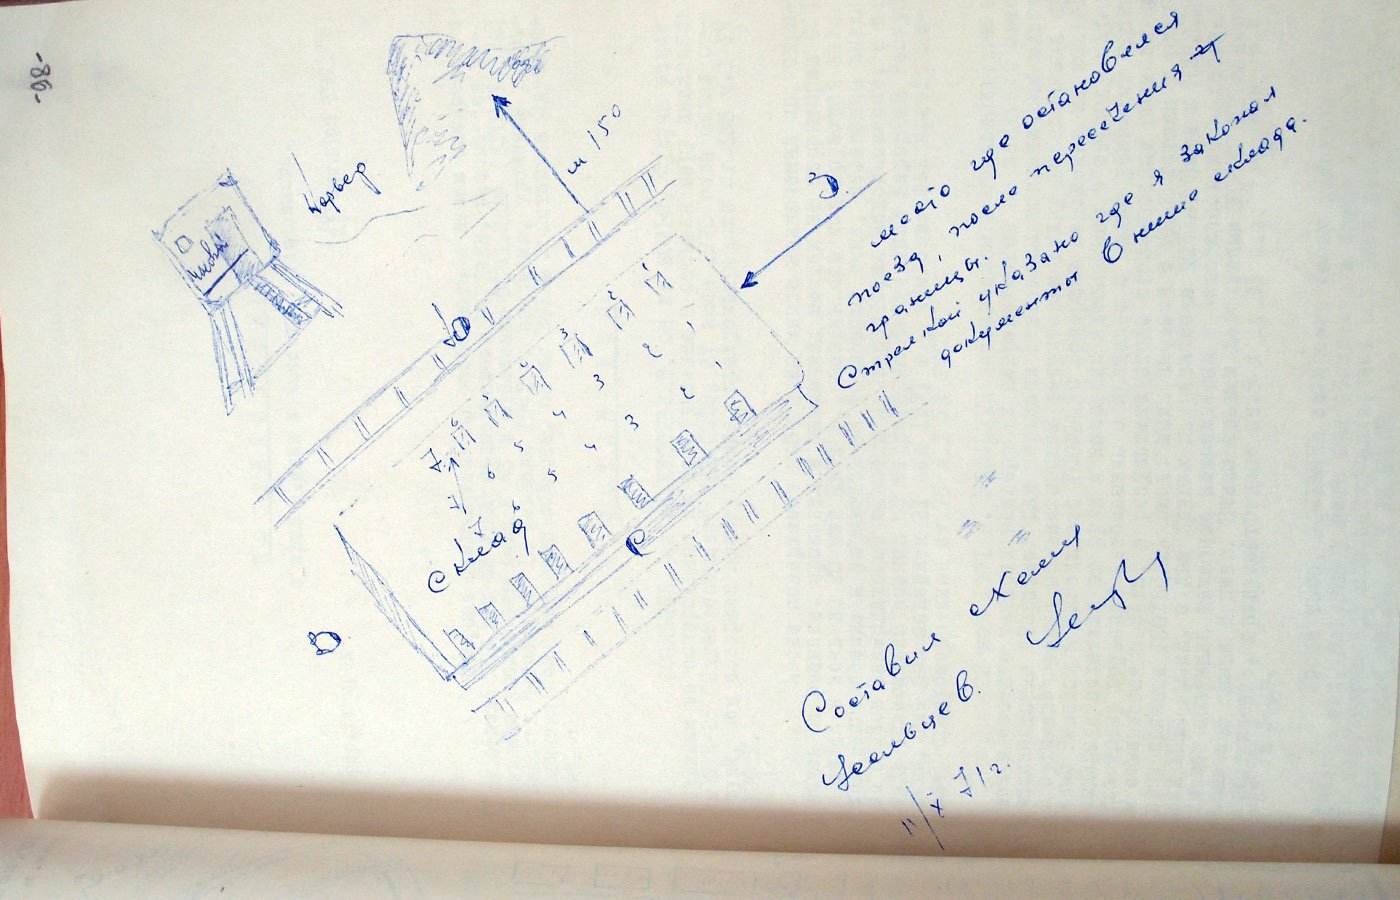 -98-
Карьер
м 150
З.
место где остановился
поезд, после пересечения
границы.
Стрелкой указано где я закопал
документы в нише склада.
Ю
1
2
3
4
5
6
7
1
2
3
4
5
6
7
1
2
3
4
5
6
7
склад
С
В
Составил схему
Усольцев.
11/X 71г.